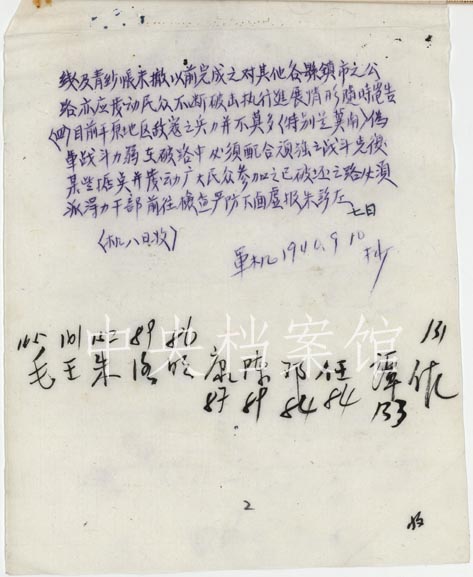 线及青纱帐未撤以前完成之对其他各县镇市之公
路亦应发动民众不断破击执行进展情形随时电告
(四)目前平原地区敌寇之兵力并不莫多(特别是冀南)伪
军战斗力弱在破路中必须配合顽强之战斗克复
某些据点并发动广大民众参加之已破坏之路必须
派得力干部前往检查严防下面虚报朱彭左
七日
(机八日收)
军机1940.9.10抄
89 131
毛 王 朱 洛 康 陈 邓 任 谭
87 89 84 84 133
中央档案馆
2